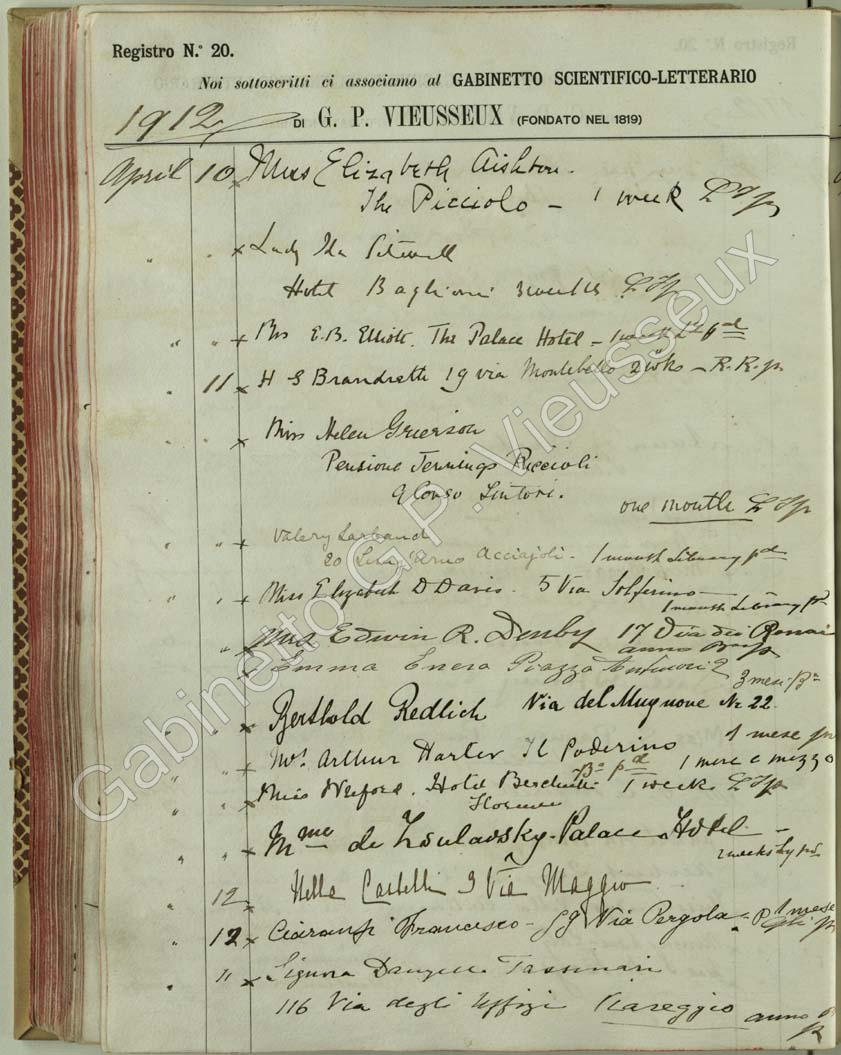 Registro N.° 20.
Noi sottoscritti ci associamo al GABINETTO SCIENTIFICO-LETTERARIO
1912 DI G. P. VIEUSSEUX (FONDATO NEL 1819)
April 10 Miss Elizabeth Aishton.
The Picciolo – 1 week
" " Lady Ida Sitwell
Hotel Baglioni 3 weeks
" " Mrs E.B. Elliott. The Palace Hotel – 1 week
" 11 H S Brandreth 19 via Montebello 2 wks – R.R. p
" " Miss Helen Grierson
Pensione Jennings Riccioli
one month
" " Valery Larbaud
20 Lung'Arno Acciajoli - 1 month Library pd
" " Miss Elizabeth D Davis. 5 Via Solferino –
1 month Library pd
" Mrs Edwin R. Denby 17 Via dei Renai
anno
Emma Piazza Antinori 2
3 mesi
" " Berthold Redlich Via del Mugnone Nr 22.
1 mese
" " Mrs. Arthur Harter Il Poderino 1 mese e mezzo
" " Miss Hotel 1 week
Florence
" " Mme de Palace Hotel –
2 weeks
" 12 Nella Castelli 9 Via Maggio
" 12 Francesco – Via Pergola 1 mese
" " Signora Tassinari
116 Via degli Uffizi Viareggio anno
Gabinetto G.P. Vieusseux